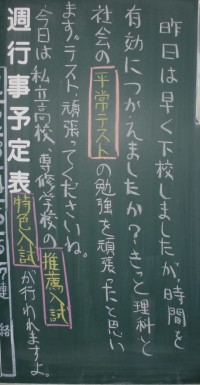 昨日は早く下校しましたが、時間を
有効につかえましたか？きっと理科と
社会の平常テストの勉強を頑張ったと思い
ます。テスト、頑張ってくださいね。
今日は私立高校、専修学校の推薦入試
特色入試が行われますよ。
週行事予定表
連絡